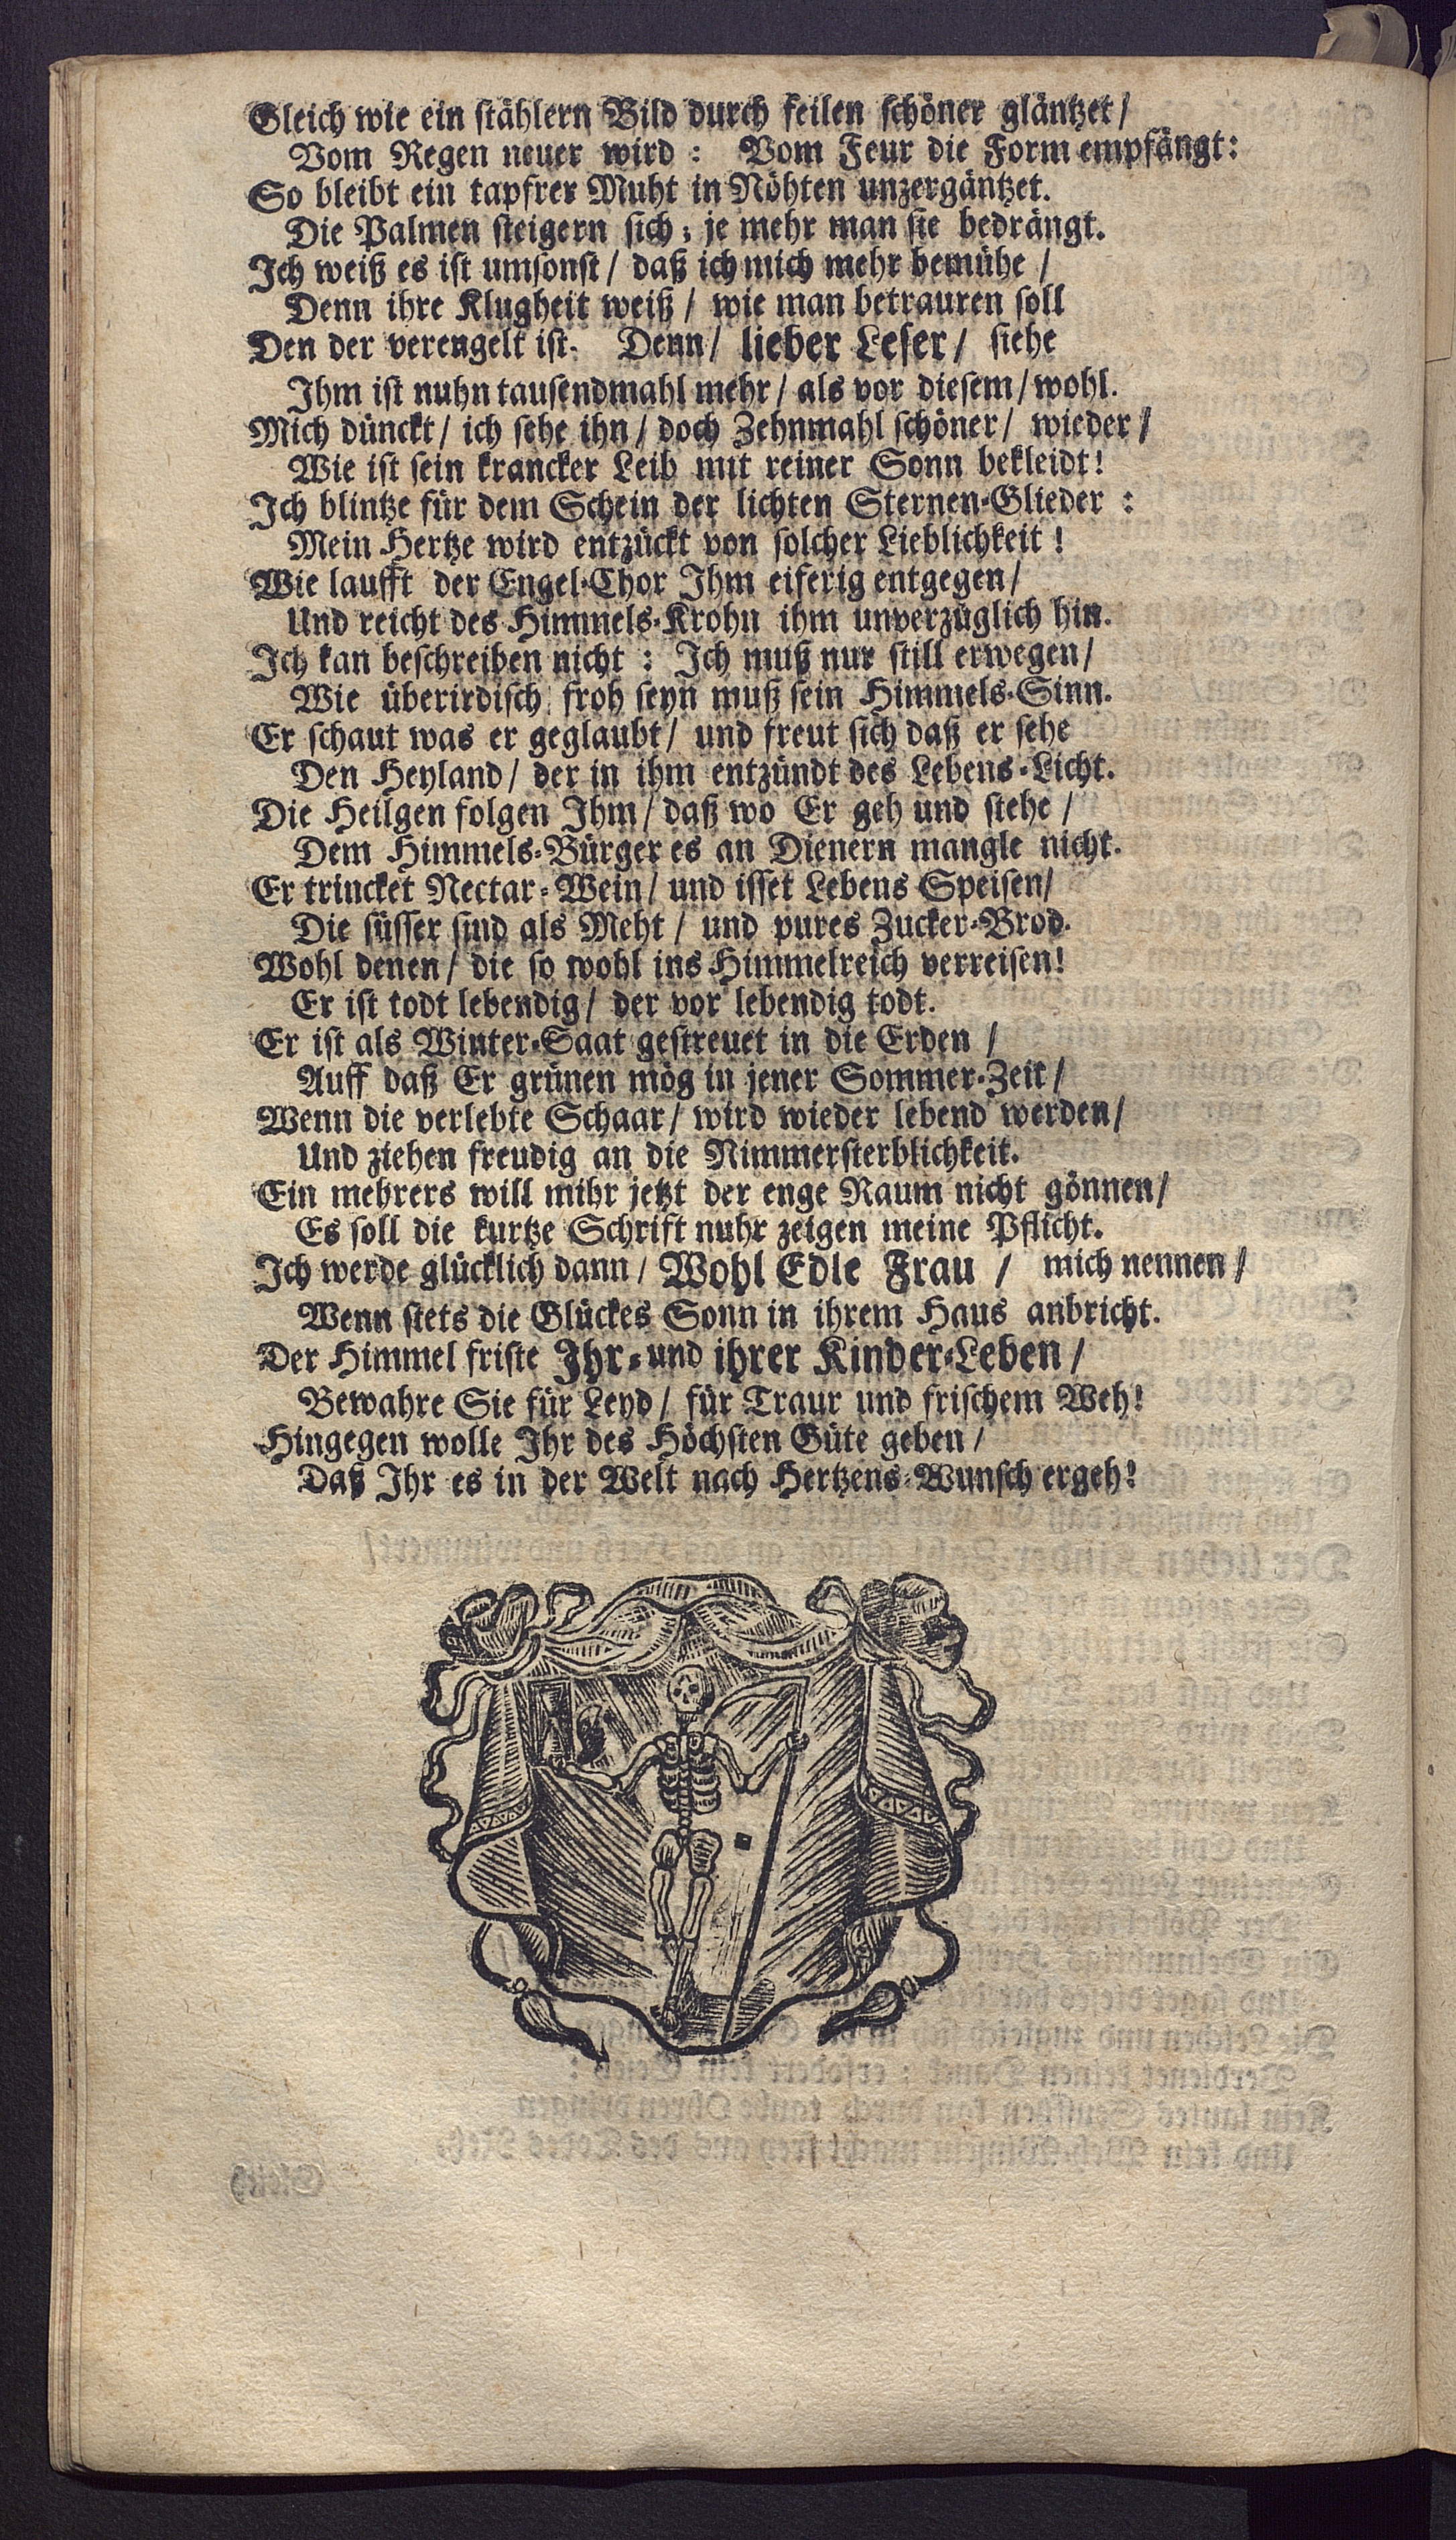 Gleich wie ein stählern Bild durch feilen schöner gläntzet/
Vom Regen neuer wird : Vom Feur die Form empfängt:
So bleibt ein tapfrer Muht in Nöhten unzergäntzet.
Die Palmen steigern sich, je mehr man sie bedrängt.
Ich weiß es ist umsonst/ daß ich mich mehr bemühe /
Denn ihre Klugheit weiß / wie man betrauren soll
Den der verengelt ist. Denn/ lieber Leser/ siehe
Ihm ist nuhn tausendmahl mehr/ als vor diesem/ wohl.
Mich dünckt/ ich sehe ihn/ doch Zehnmahl schöner/ wieder/
Wie ist sein krancker Leib mit reiner Sonn bekleidt!
Ich blintze für dem Schein der lichten Sternen-Glieder :
Mein Hertze wird entzückt von solcher Lieblichkeit !
Wie laufft der Engel-Chor Ihm eiferig entgegen/
Und reicht des Himmels-Krohn ihm unverzüglich hin.
Ich kan beschreiben nicht : Ich muß nur still erwegen/
Wie überirdisch froh seyn muß sein Himmels-Sinn.
Er schaut was er geglaubt/ und freut sich daß er sehe
Den Heyland/ der in ihm entzündt des Lebens-Licht.
Die Heilgen folgen Ihm/ daß wo Er geh und stehe /
Dem Himmels-Bürger es an Dienern mangle nicht.
Er trincket Nectar-Wein/ und isset Lebens Speisen/
Die süsser sind als Meht / und pures Zucker-Brod.
Wohl denen/ die so wohl ins Himmelreich verreisen!
Er ist todt lebendig/ der vor lebendig todt.
Er ist als Winter-Saat gestreuet in die Erden /
Auff daß Er grünen mög in jener Sommer-Zeit/
Wenn die verlebte Schaar/ wird wieder lebend werden/
Und ziehen freudig an die Nimmersterblichkeit.
Ein mehrers will mihr jetzt der enge Raum nicht gönnen/
Es soll die kurtze Schrift nuhr zeigen meine Pflicht.
Ich werde glücklich dann/ Wohl Edle Frau / mich nennen /
Wenn stets die Glückes Sonn in ihrem Haus anbricht.
Der Himmel friste Ihr- und ihrer Kinder-Leben /
Bewahre Sie für Leyd/ für Traur und frischem Weh!
Hingegen wolle Ihr des Höchsten Güte geben /
Daß Ihr es in der Welt nach Hertzens-Wunsch ergeh!